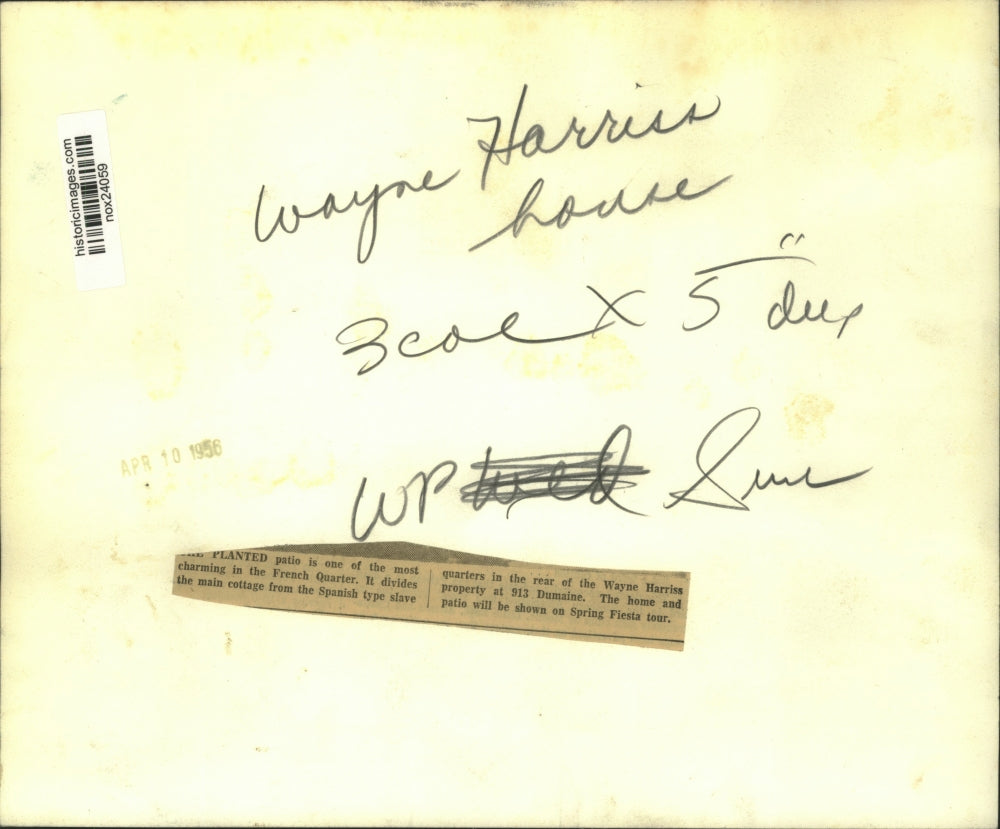 historicimages.com
nox24059
Wayne Harriss
house
3 col x 5" deep
APR 10 1956
WP Wed Sun
PLANTED patio is one of the most
charming in the French Quarter. It divides
the main cottage from the Spanish type slave
quarters in the rear of the Wayne Harriss
property at 913 Dumaine. The home and
patio will be shown on Spring Fiesta tour.